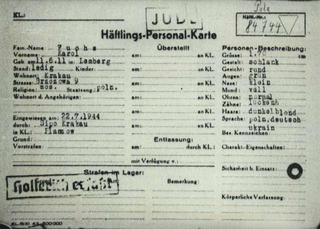 Pole
KL:
JUDE
Häftl.-Nr.:
84744
Häftlings-Personal-Karte
Fam.-Name Fuchs
Vorname Karol
Geb. am 11.6.11 in Lemberg
Stand: ledig Kinder:
Wohnort: Krakau
Strasse: Brazowa 9
Religion: mos. Staatsang.: poln.
Wohnort d. Angehörigen:
Eingewiesen am: 22.7.1944
durch: Sipo Krakau
in KL.: Plaszow
Grund:
Vorstrafen:
Überstellt
am: an KL.
am: an KL.
am: an KL.
am: an KL.
am: an KL.
am: an KL.
Entlassung:
am: durch KL.:
mit Verfügung v.:
Personen-Beschreibung:
Grösse: cm
Gestalt: schlank
Gesicht: rund
Augen: grün
Nase: klein
Mund: voll
Ohren: normal
Zähne: lückenh
Haare: dunkelblond
Sprache: poln.deutsch
ukrain
Bes. Kennzeichen:
Charakt.-Eigenschaften:
Sicherheit b. Einsatz:
Körperliche Verfassung:
Strafen im Lager:
Grund: Art: Bemerkung:
Hollerith erfaßt